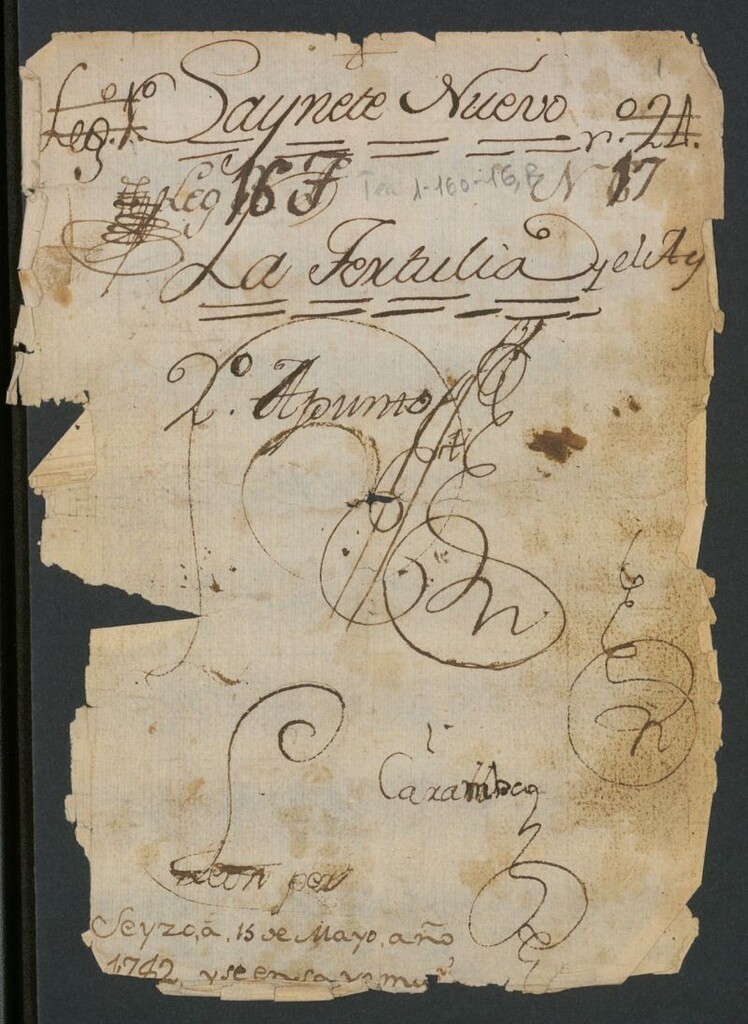 Leg.º 1.º Saynete Nuevo n.º 24.
Leg.º 167 Tea 1-160-16, B N 17
La Tertulia y el Ay
2.º Apunto
1º
Caramba
Leon per
Seyzo, à, 15 de Mayo, año
1742, y se ensa